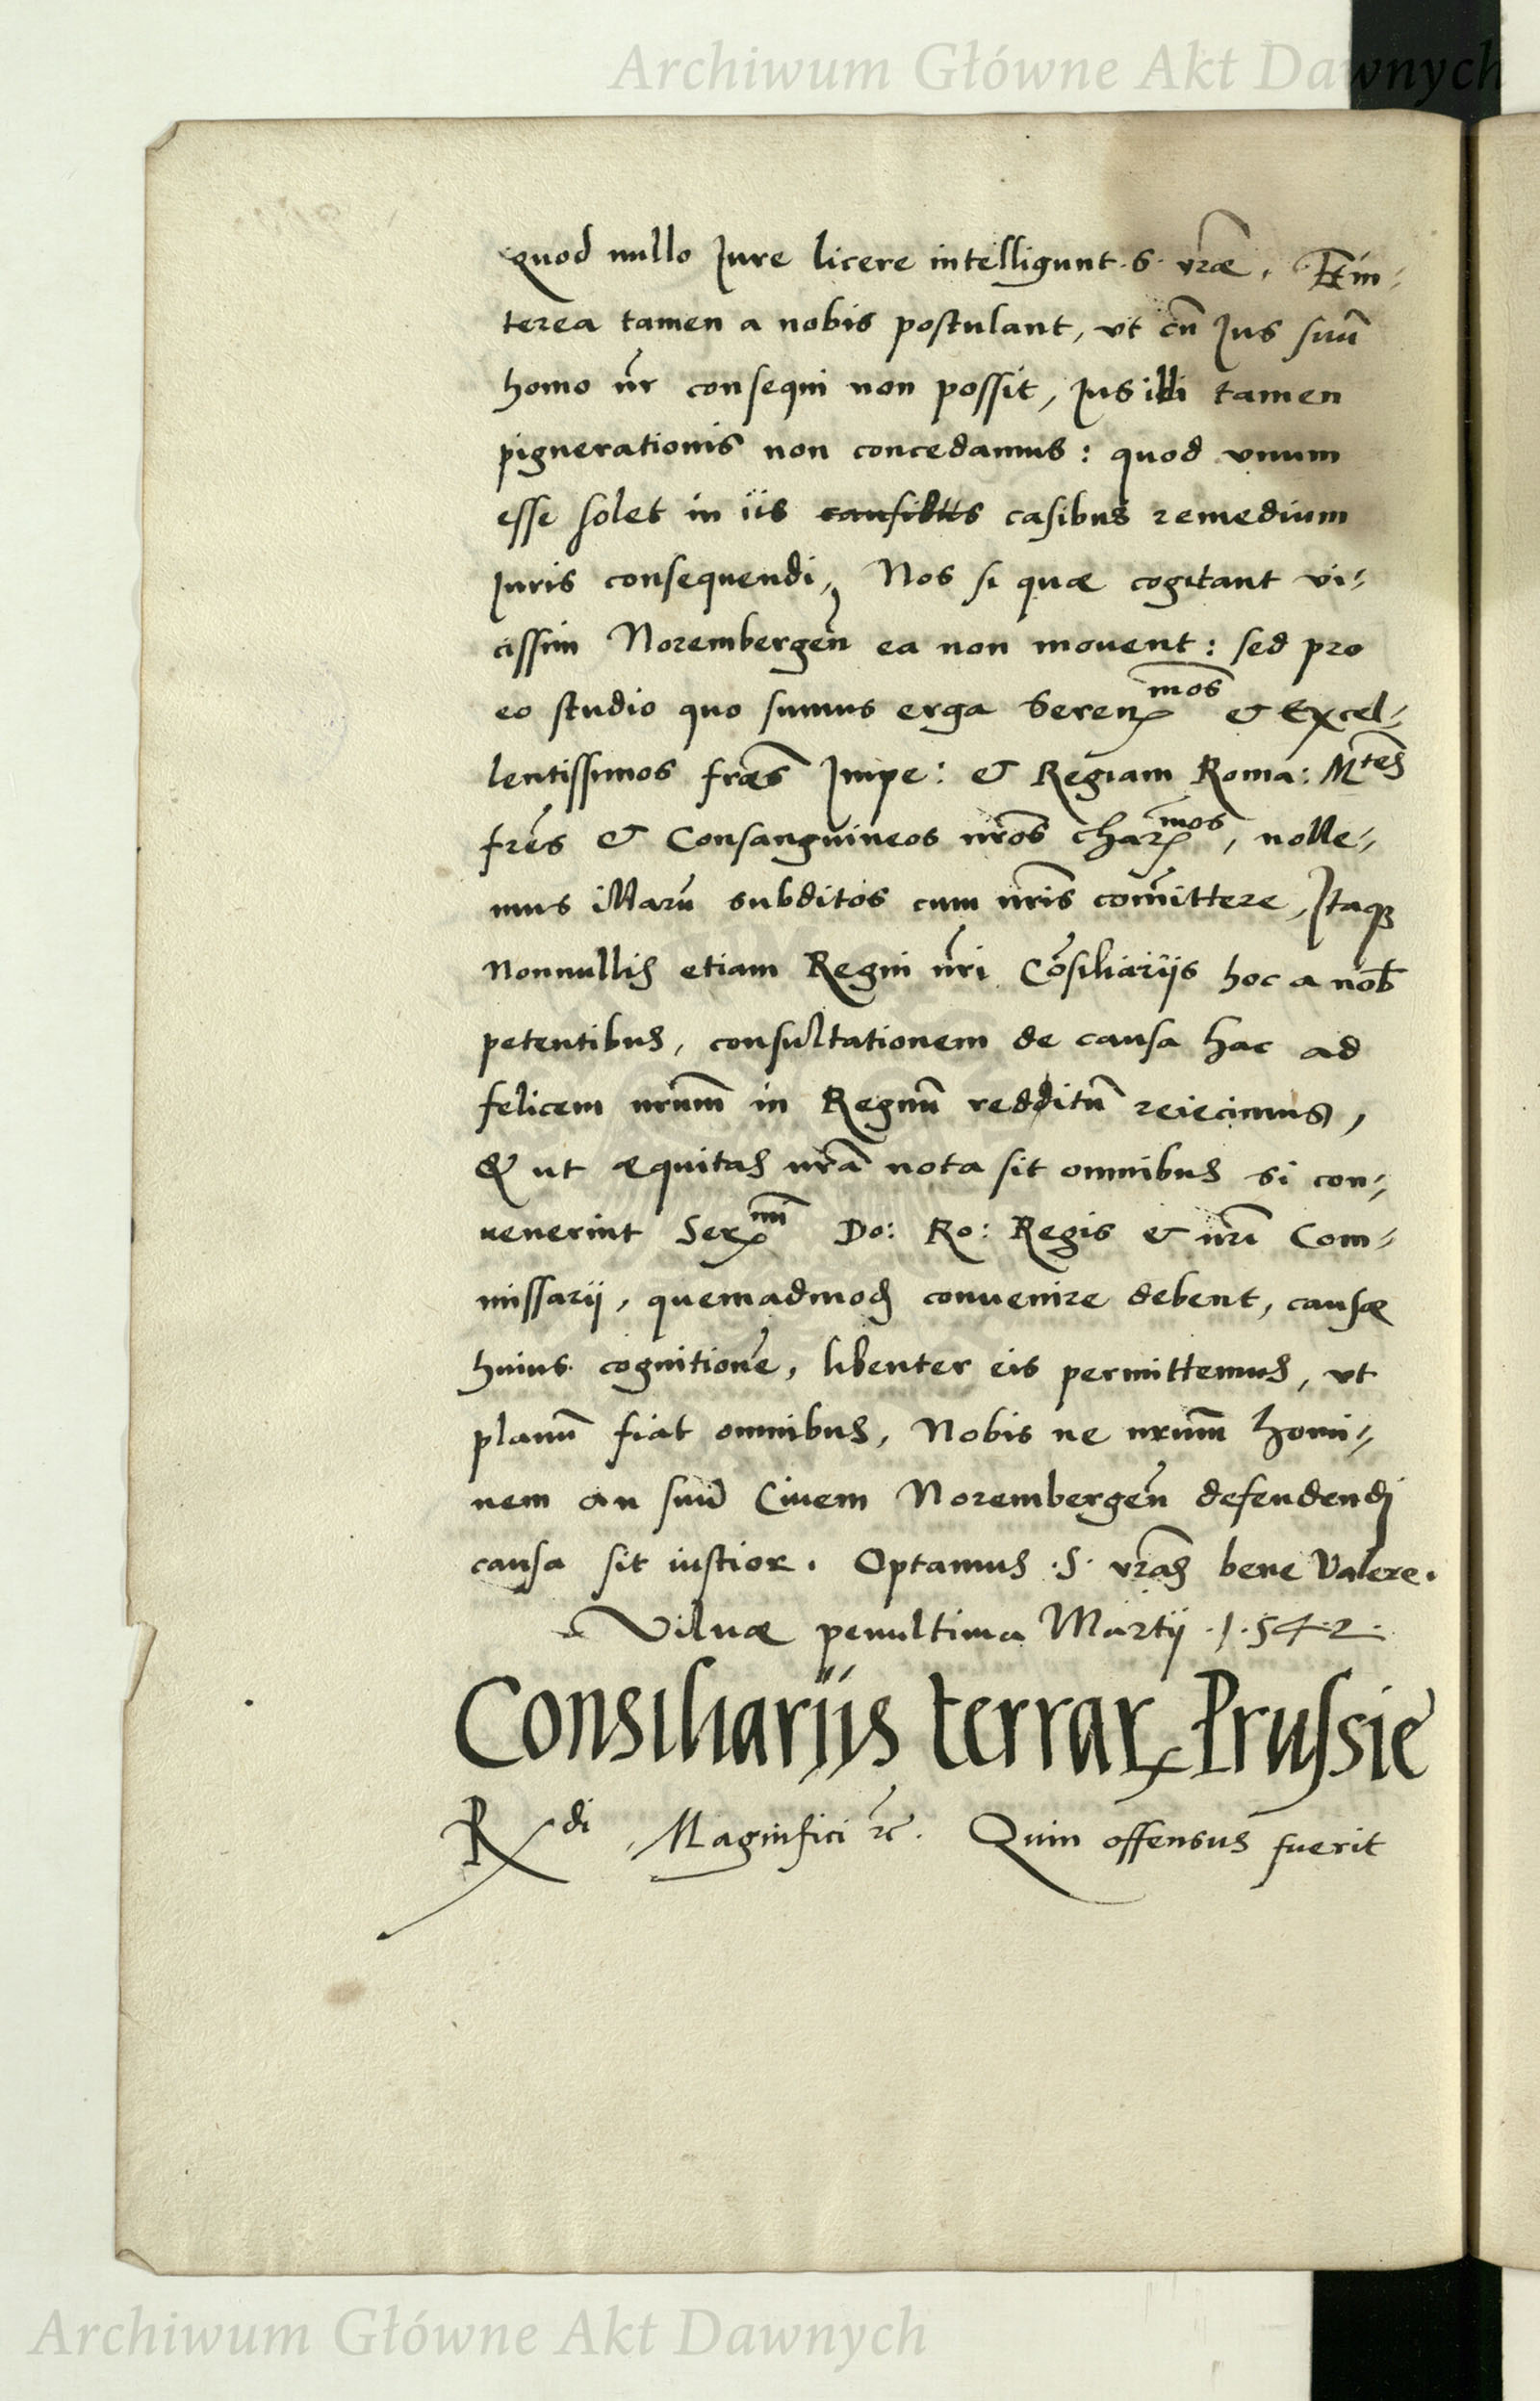 Archiwum Główne Akt Dawnych
quod nullo Iure licere intelligunt .S. vrãe. Et in-
terea tamen a nobis postulant, vt cũ Ius suũ
homo nr̃ consequi non possit, Ius illi tamen
pignerationis non concedamus: quod vnum
esse solet in iis causibus casibus remedium
Iuris consequendi, Nos si quæ cogitant vi-
cissim Norembergeñ ea non mouent: sed pro
eo studio quo sumus erga Serenꝝmos & Excel-
lentissimos frães Impe: & Regiam Roma: Mtes
frẽs & Consanguineos nrõs charꝝmos, nolle-
mus illarũ subditos cum nrĩs com̃ittere, Itaqꝫ
Nonnullis etiam Regni nr̃i Cõsiliariis hoc a nob̃
petentibus, consultationem de causa hac ad
felicem nrũm in Regnũ redditũ reiecimus,
& ut æquitas nrã nota sit omnibus si con-
uenerint Serꝝmi Do: Ro: Regis & nrĩ Com-
missarij, quemadmodꝫ conuenire debent, causæ
huius cognitionẽ, libenter eis permittemus, vt
planũ fiat omnibus, Nobis ne nrũm homi-
nem an suũ Ciuem Norembergeñ defendendi
causa sit iustior. Optamus .S. vrãs bene Valere.
Vilnæ penultima Martij .1.542.
Consiliariis terrarꝝ Prussie
Rdi Magnifici &c̃. Quin offensus fuerit
Archiwum Główne Akt Dawnych